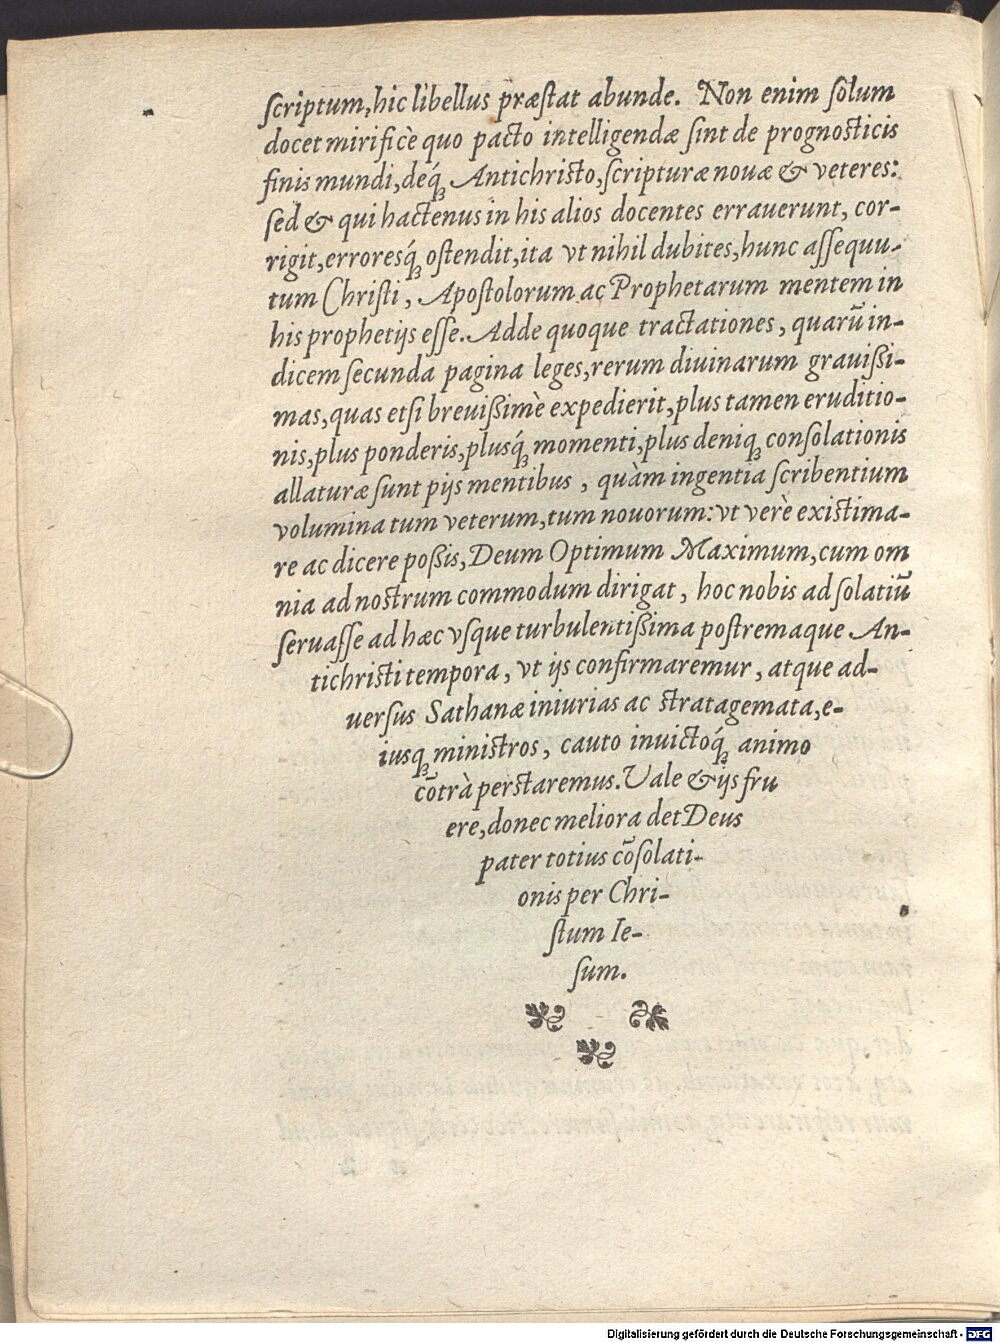 ſcriptum, hic libellus præſtat abunde. Non enim ſolum
docet mirificè quo pacto intelligendæ ſint de prognoſticis
finis mundi, deq́ꝫ Antichriſto, ſcripturæ nouæ & veteres:
ſed & qui hactenus in his alios docentes errauerunt, cor-
rigit, erroresq́ꝫ oſtendit, ita vt nihil dubites, hunc aſſequu-
tum Chriſti, Apoſtolorum ac Prophetarum mentem in
his prophetijs eſſe. Adde quoque tractationes, quarũ in-
dicem ſecunda pagina leges, rerum diuinarum grauißi-
mas, quas etſi breuißimè expedierit, plus tamen eruditio-
nis, plus ponderis, plusq́ꝫ momenti, plus deniqꝫ conſolationis
allaturæ ſunt pijs mentibus, quàm ingentia ſcribentium
volumina tum veterum, tum nouorum: vt verè exiſtima-
re ac dicere poßis, Deum Optimum Maximum, cum om
nia ad noſtrum commodum dirigat, hoc nobis ad ſolatiũ
ſeruaſſe ad hæc vſque turbulentißima poſtremaque An-
tichriſti tempora, vt ijs confirmaremur, atque ad-
uerſus Sathanæ iniurias ac ſtratagemata, e-
iusqꝫ miniſtros, cauto inuictoq́ꝫ animo
cõtrà perſtaremus. Vale & ijs fru
ere, donec meliora det Deus
pater totius cõſolati-
onis per Chri-
ſtum Ie-
ſum.
Digitalisierung gefördert durch die Deutsche Forschungsgemeinschaft - DFG